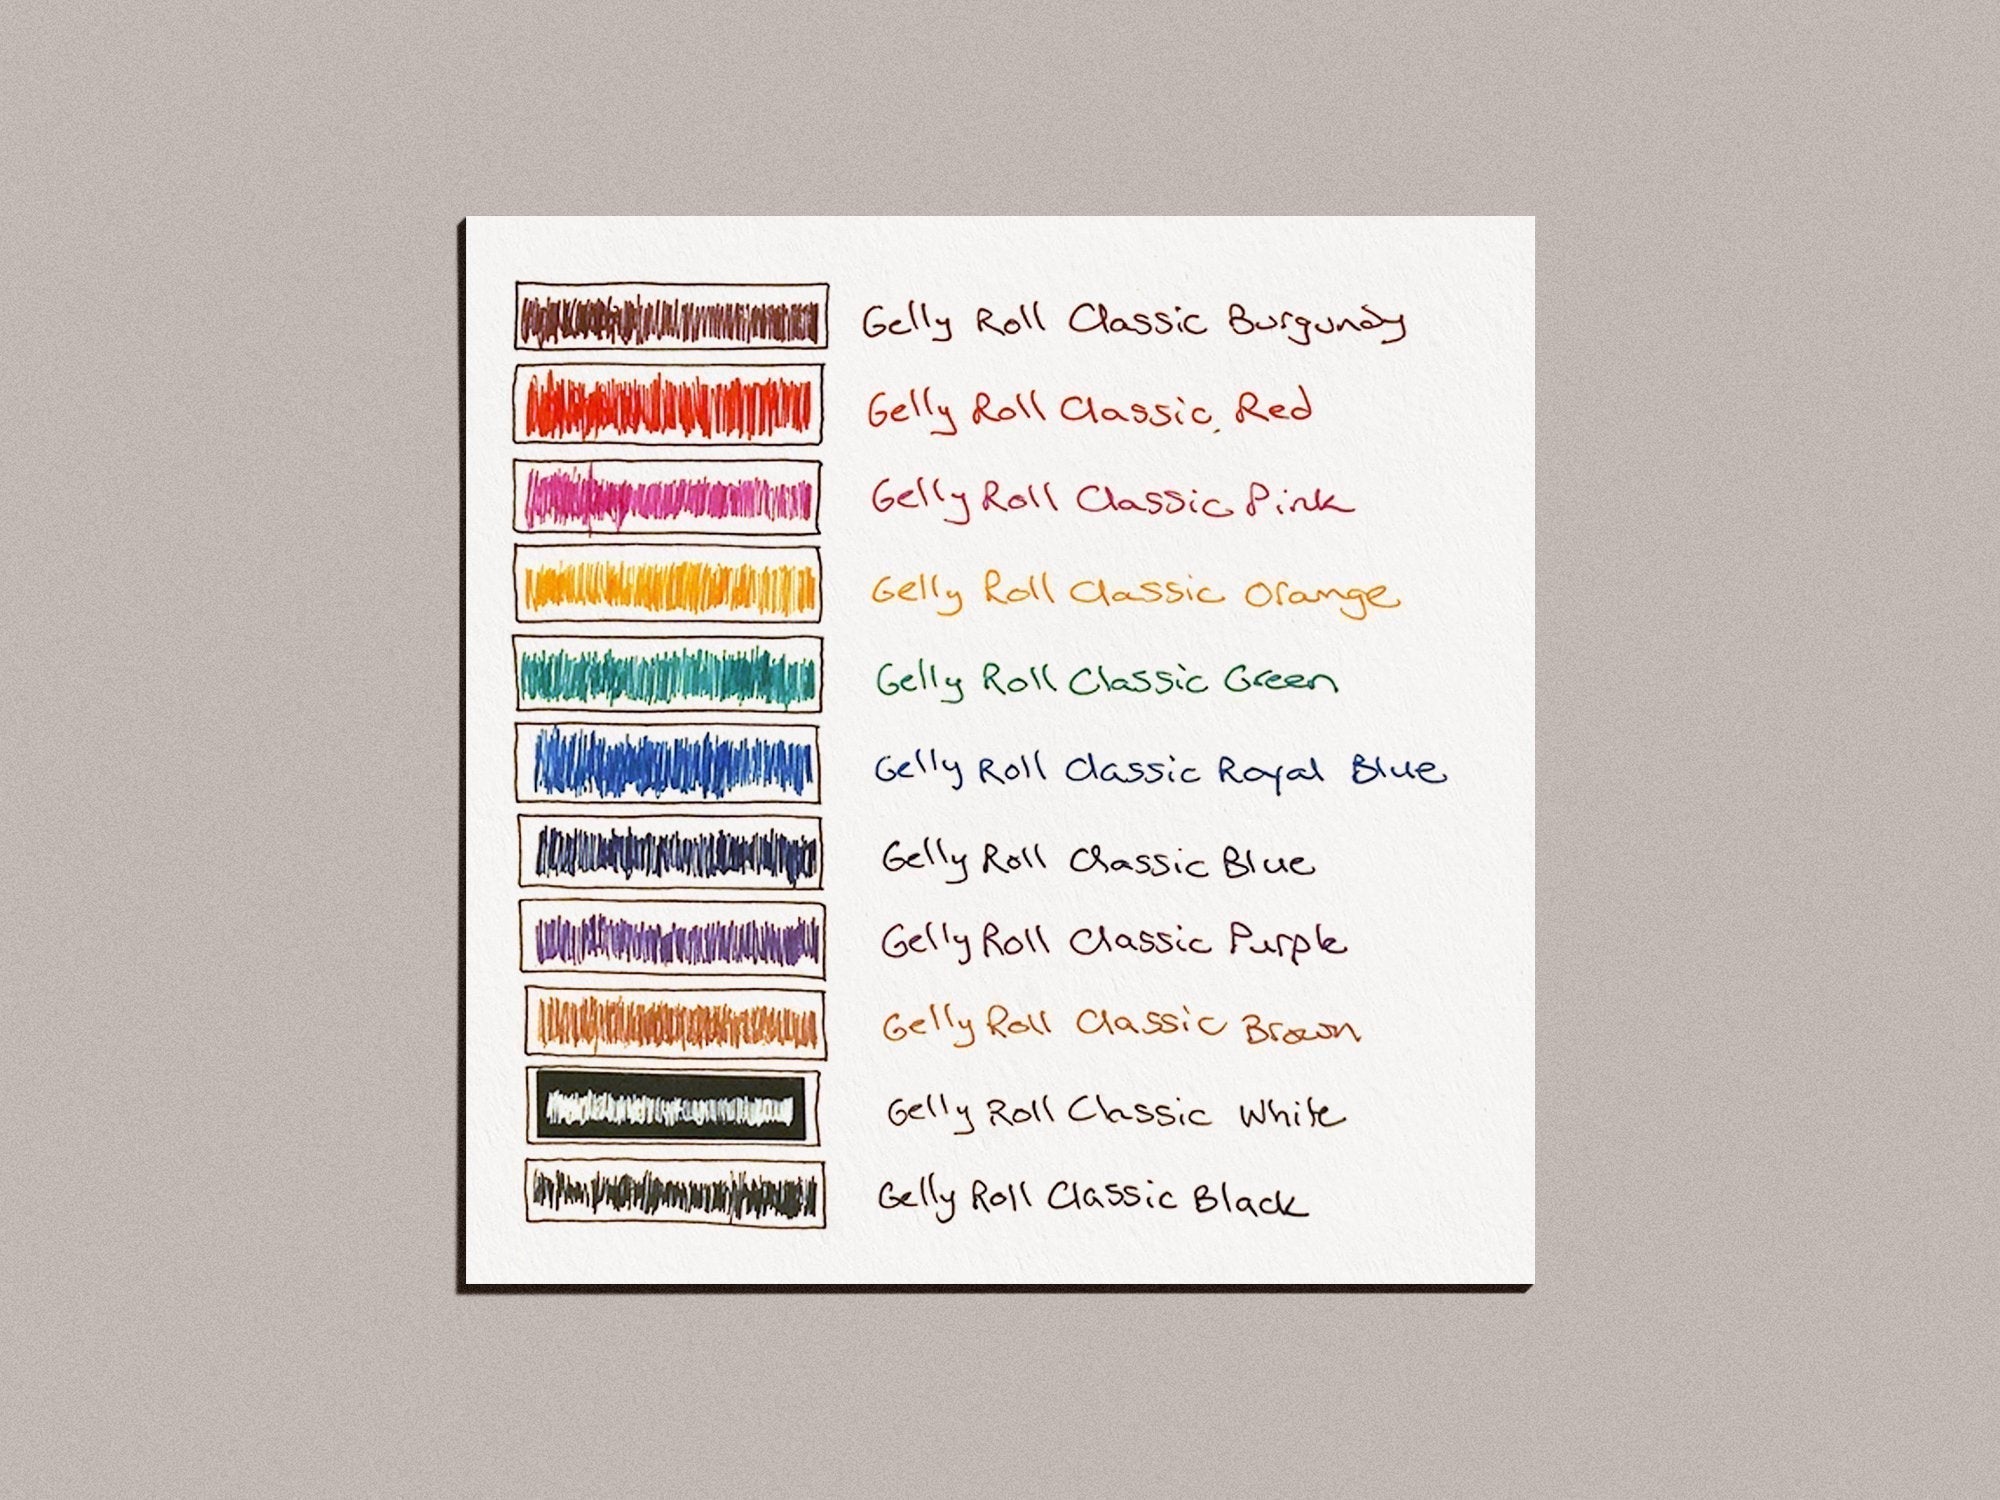 Gelly Roll Classic Burgundy
Gelly Roll Classic Red
Gelly Roll Classic Pink
Gelly Roll Classic Orange
Gelly Roll Classic Green
Gelly Roll Classic Royal Blue
Gelly Roll Classic Blue
Gelly Roll Classic Purple
Gelly Roll Classic Brown
Gelly Roll Classic White
Gelly Roll Classic Black